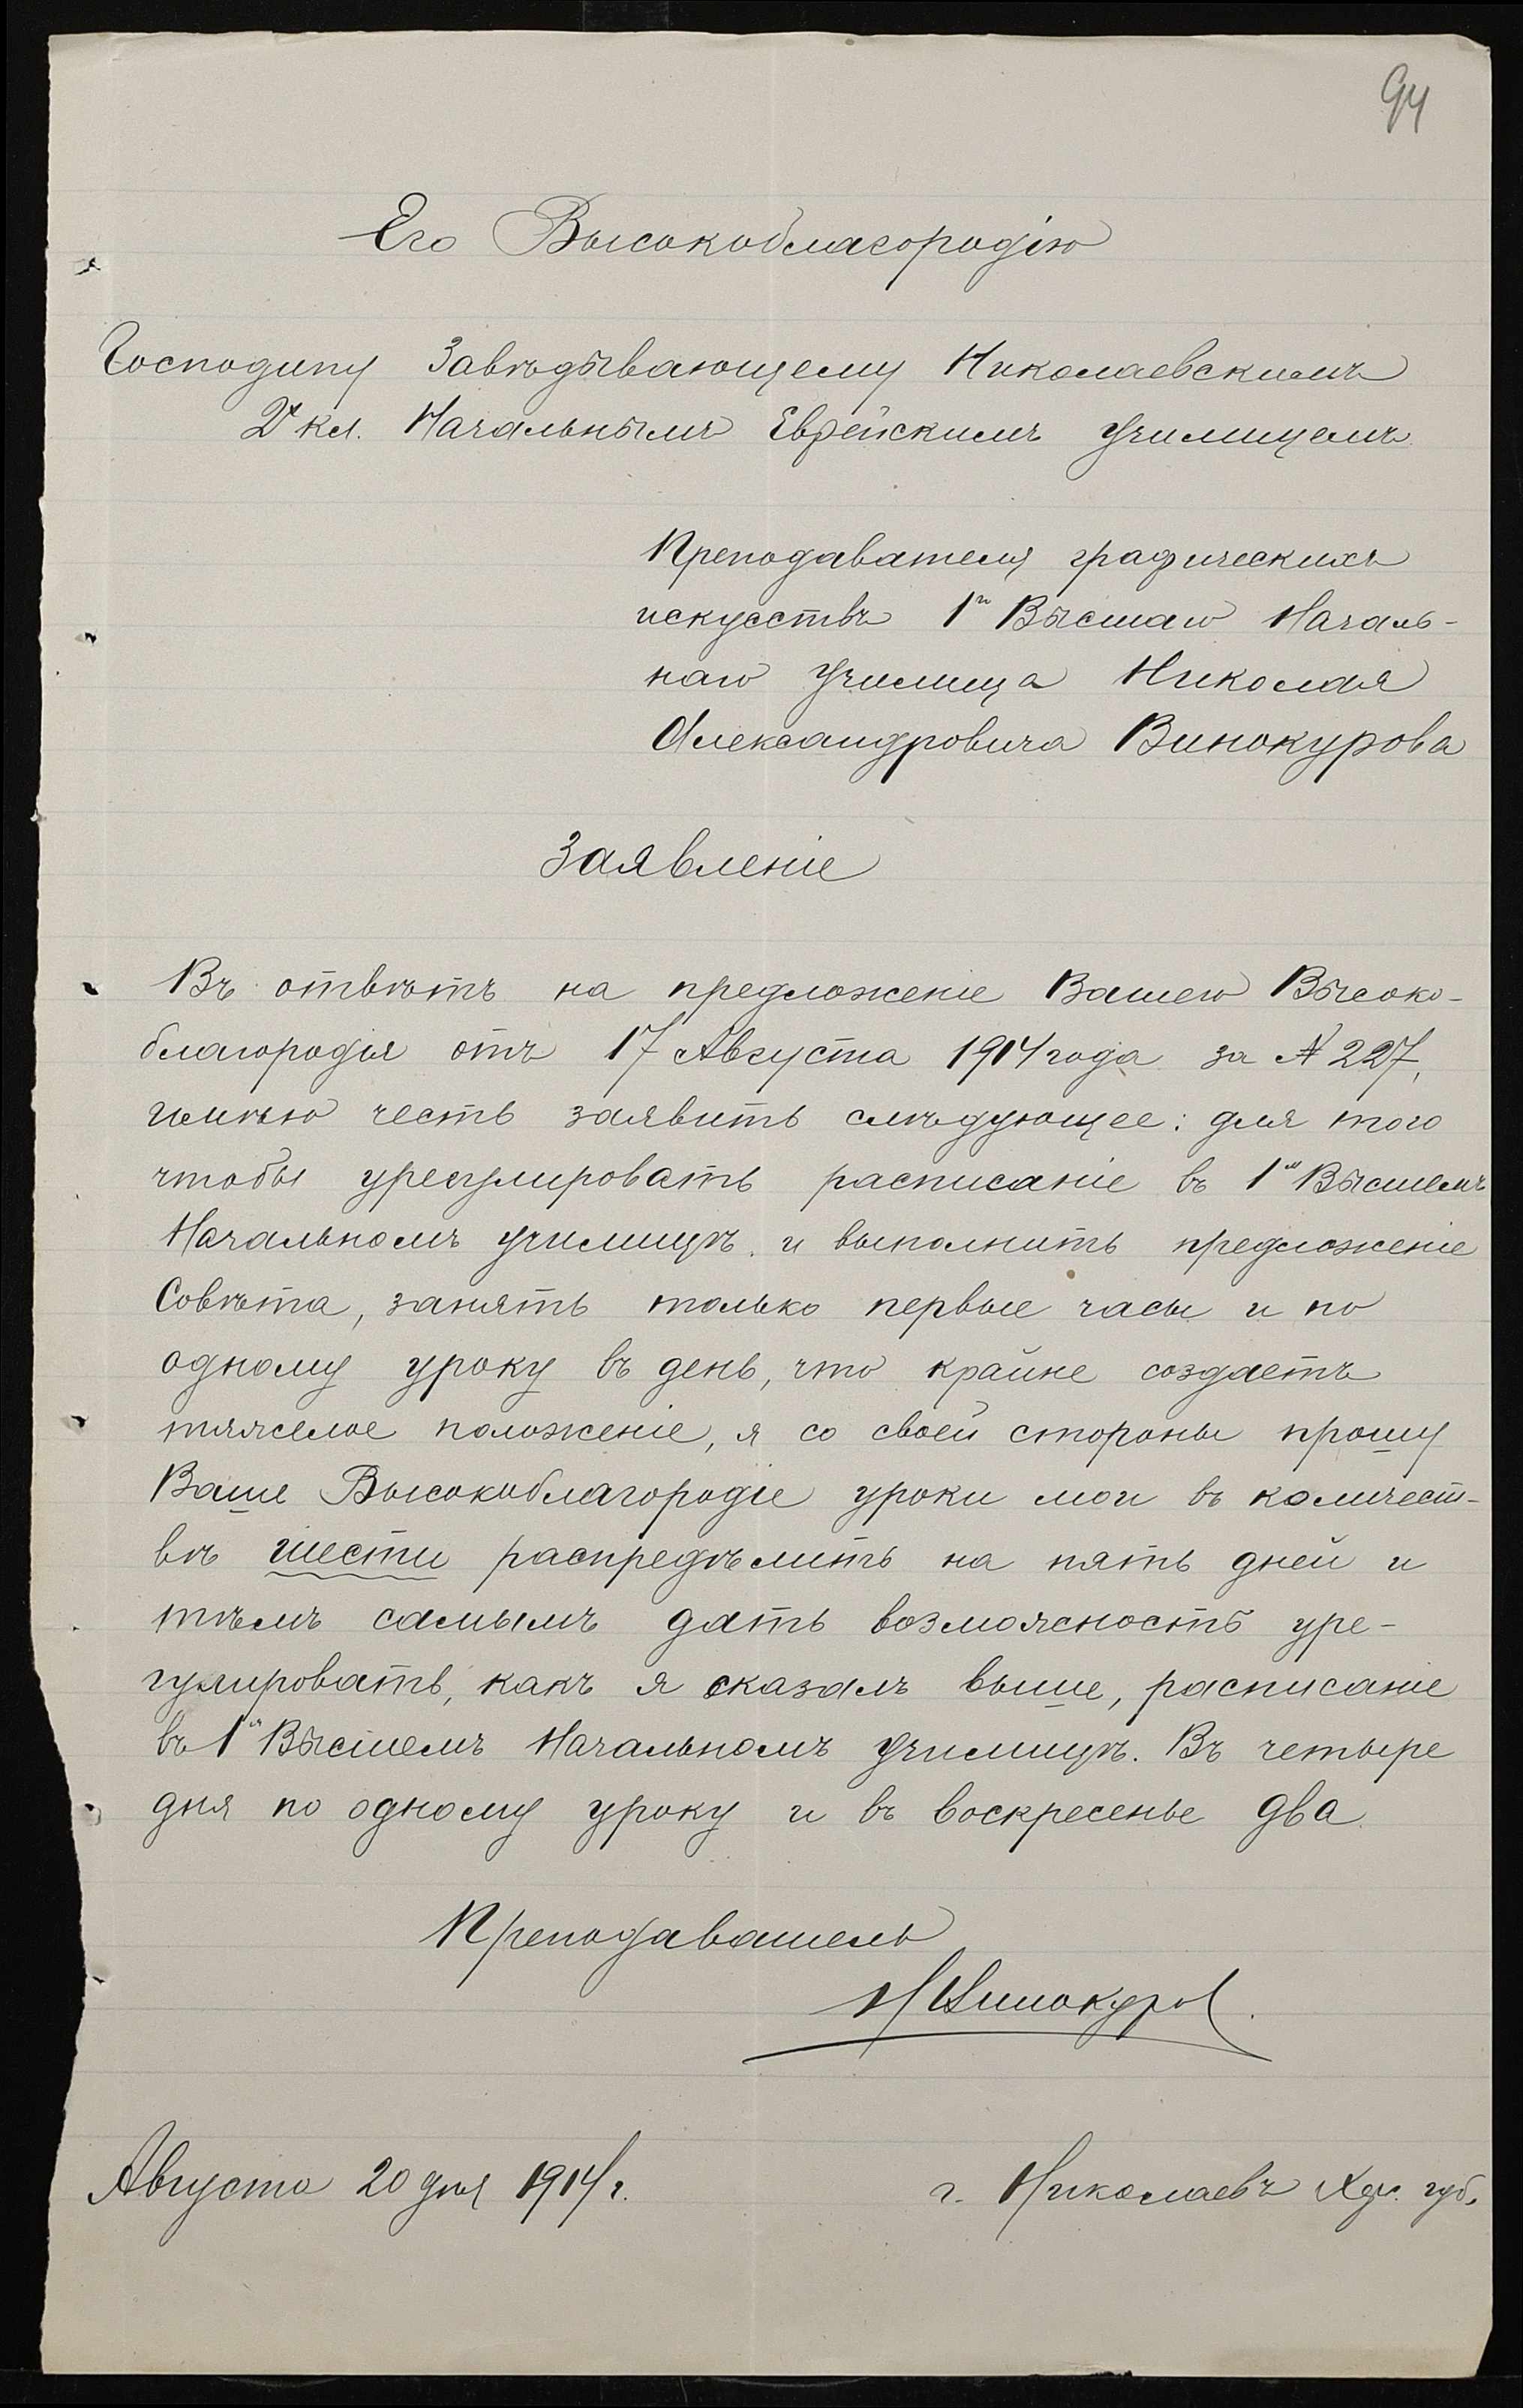 94
Его Высокоблагородію
Господину Завѣдывающему Николаевскимъ
2х кл. Начальнымъ Еврейскимъ училищемъ
Преподавателя графическихъ
искусствъ 1го Высшаго Началь-
наго училища Николая
Александровича Винокурова
Заявленіе
Въ отвѣтъ на предложеніе Вашего Высоко-
благородія отъ 17 Августа 1914 года за № 227,
имѣю честь заявить слѣдующее: для того
чтобы урегулировать расписаніе въ 1м Высшемъ
Начальномъ училищѣ и выполнить предложеніе
Совѣта, занять только первые часы и по
одному уроку въ день, что крайне создаетъ
тяжелое положеніе, я со своей стороны прошу
Ваше Высокоблагородіе уроки мои въ количест-
вѣ шести распредѣлить на пять дней и
тѣмъ самымъ дать возможность уре-
гулировать, какъ я сказалъ выше, расписаніе
въ 1м Высшемъ Начальномъ училищѣ. Въ четыре
дня по одному уроку и въ воскресенье два.
Преподаватель
Н Винокуров.
Августа 20 дня 1914 г.
г. Николаевъ Хер. губ.